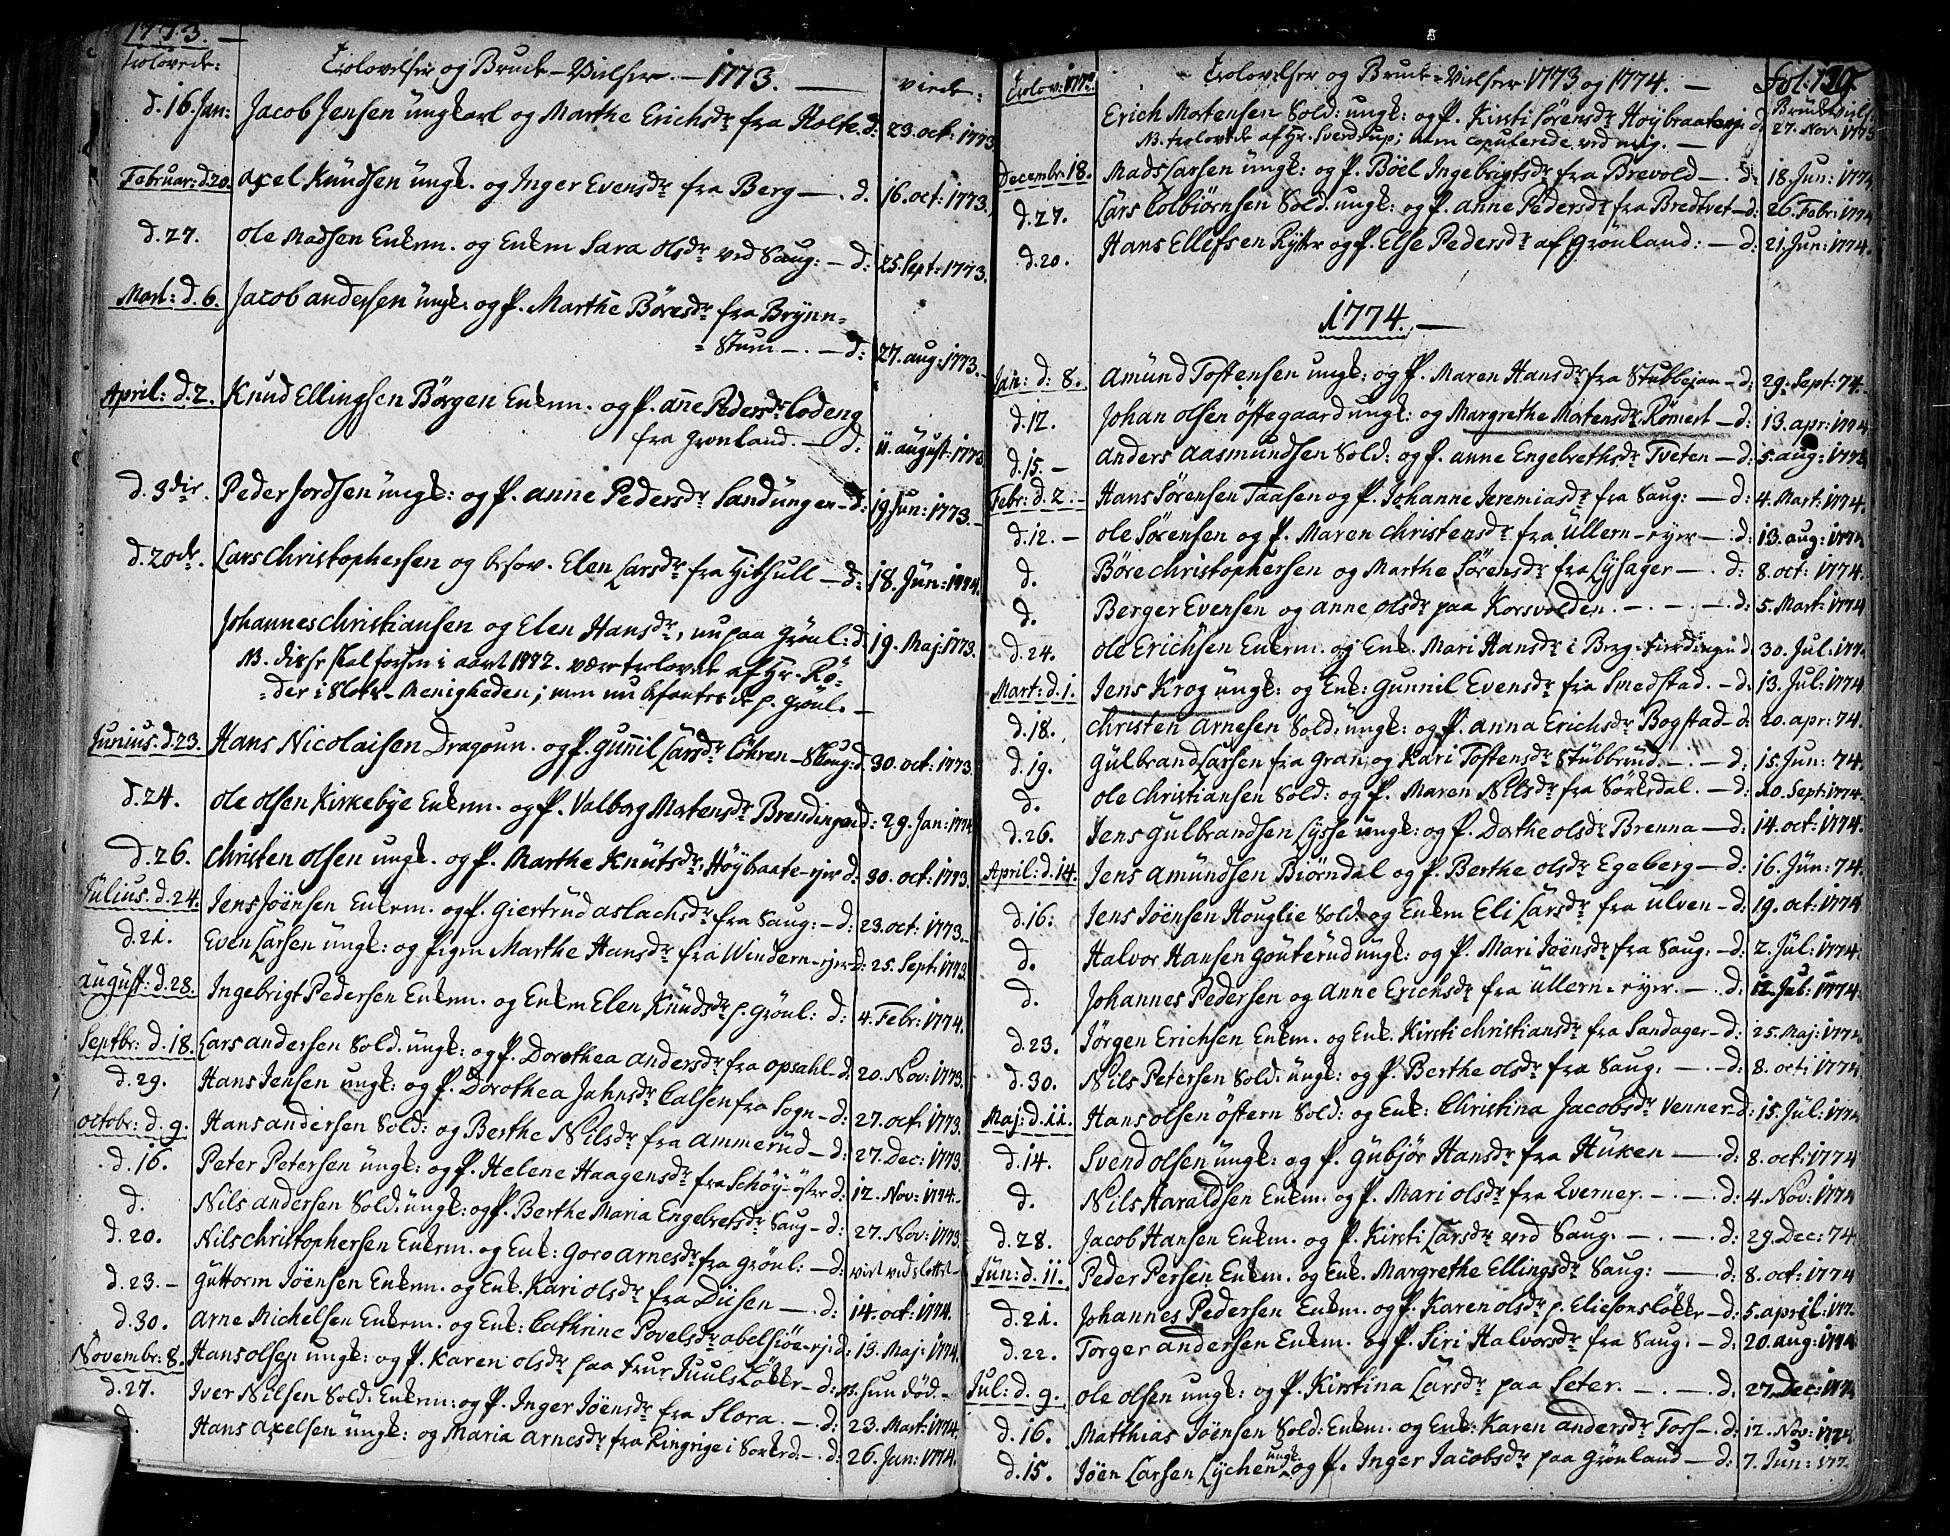 1773.
Trolovede: Trolovelser og Brude-Vielser. — 1773. — viede:
d. 16. Jan: Jacob Jensen ungkarl og Marthe Erichsdr fra Holte. d: 23. oct: 1773
Februar: d. 20. Axel Knudsen ungk. og Inger Evensdr fra Berg — . d. 16. oct: 1773.
d. 27. Ole Madsen Enkem. og Enkem Sara Olsdr ved Saug: — d: 25. Sept: 1773.
Mart: d. 6. Jacob Andersen ungk: og P. Marthe Böresdr fra Brynn=
= Stum — . — d: 27. aug: 1773.
April: d. 2. Knud Ellingsen Börgen Enkem. og P. Anne Pedersdr Lodeng
fra Grönland. — d: 11. august: 1773
d. 3die. Peder Jordsen ungk: og P. Anne Pedersdr Sandungen — d: 19. Jun: 1773. —
d. 20de. Lars Christophersen og besov. Elen Larsdr fra — d: 18. Jun: 1774.
Johannes Christiansen og Elen Hansdr, nu paa Grönl: d. 19. Maj: 1773.
NB. disse skal forhen i aaret 1772. være trolovede af Hr. Rö-
=der i Slots-Menigheden; men nu befantes de p. Grönl. —
Junius. d. 23. Hans Nicolaisen Dragoun. og P. Gunnil Larsdr Lökren — Skoug: d. 30. oct: 1773.
d. 24. Ole Olsen Kirkebye Enkem. og P. Valborg Mortensdr Brendingen d: 29. Jan: 1774
d. 26. Christen Olsen ungk. og P. Marthe Knutsdr, Höybraate-ejer d: 30. oct: 1773.
Julius. d. 24. Jens Jöensen Enkem. og P. Giertrud Aslachsdr fra Saug: — d: 23. oct: 1773. —
d. 21. Even Larsen ungk: og Pigen Marthe Hansdr fra Windern-ejer d: 25. Sept: 1773.
August: d. 28. Ingebrigt Pedersen Enkem. og Enkem Elen Knudsdr p. Grönl: d: 4. Febr: 1774.
Septbr: d. 18. Lars Andersen Sold. ungk: og P. Dorothea Andersdr fra Opsahl — d: 20. Nov: 1773.
d. 29. Hans Jensen ungk: og P. Dorothea Jahnsdr Calsen fra Sogn — d: 27. oct: 1773.
Octobr: d. 9. Hans Andersen Sold: og Berthe Nilsdr fra Ammerud — d: 27. Dec: 1773.
d. 16. Peter Petersen ungk: og P. Helene Haagensdr fra Schöy-öster d: 12. Nov: 1774.
d. Nils Andersen Sold. ungk: og P. Berthe Maria Engebretsdr Saug — d: 27. Nov: 1773.
d. 20. Nils Christophersen Enkem. og Enk: Goro Arnesdr fra Grönl: — d: viet ved slottet —
d. 23. — Guttorm Jöensen Enkem. og Enk. Kari Olsdr fra Disen — . d: 14. oct: 1774.
d. 30. Arne Michelsen Enkem. og Enk: Cathrine Povelsdr Abelsöe-ej: d: 13. Maj: 1774.
Novembr: 8. Hans Olsen ungk: og P. Karen Olsdr paa Frue Juuls Lökke — d: NB. hun död. —
d. 27. Iver Nilsen Sold. Enkem: og P. Inger Jöensdr fra Flora. — d: 23. Mart: 1774.
d. Hans Axelsen ungk: og Maria Arnesdr fra Ringrige i Sorked — . d: 26. Jan: 1774.
Trolov: 1773. Trolovelser og Brude-Vielser 1773 og 1774. — fol: 139.
Brudeviels:
Erich Mortensen Sold: ungk: og P. Kirsti Sörensdr Höybraatenej: d: 27. Nov: 1773
NB. trolovede af Hr. Sverdrup; men copulerede ved mig. —
Decembr. 18. Mads Larsen ungk: og P. Böel Ingebrigtsdr fra Brevold — . d: 18. Jun: 1774
d. 27. Lars Tolbiörnsen Sold. ungk: og P. Anne Pedersdr fra Bredtvet — d: 26. Febr: 1774
d. 20. Hans Ellefsen Rytter og P. Else Pedersdr af Grönland: — d: 21. Jun: 1774.
1774. —
Jan: d: 8. Amund Tostensen ungk: og P. Maren Hansdr fra Stubbejan — d: 29. Sept: 74.
d. 12. Johan Olsen Östegaard ungk: og Margrethe Mortensdr Römert — d: 13. apr: 1774
d. 15. — Anders Aasmundsen Sold: og P. Anne Engebrethsdr Tveten — d: 5. aug: 1774
Febr: d. 2. — Hans Sörensen Taasen og P. Johanne Jeremiasdr fra Saug: — d: 4. Mart: 1774.
d. 12. — Ole Sörensen og P. Maren Christensdr fra Ullern-ejer — . d: 13. aug: 1774
d. Böre Christophersen og Marthe Sörensdr fra Lysager — . d: 8. oct: 1774.
d. Berger Evensen og Anne Olsdr paa Korsvolden. — . — . — d: 5. Mart: 1774
d. 24. Ole Erichsen Enkem. og Enk. Mari Hansdr i Berg-Fierdingen d. 30. Jul: 177
Mart: d. 1. Jens Krog ungk: og Enk: Gunnil Evensdr fra Smedstad. — d: 13. Jul: 1774
d. 18. Christen Arnesen Sold: ungk: og P. Anna Erichsdr Bogstad — d: 20. apr: 74.
d. 19. Gulbrand Larsen fra Gran og Kari Tostensdr Stubberud. — . — d: 15. Jun: 74.
d. Ole Christiansen Sold: og P. Maren Nilsdr fra Sörkedal. — d: 10. Sept: 1774.
d. 26. Jens Gulbrandsen Lysse ungk: og P. Dorthe Olsdr Brenna — d: 14. oct: 1774.
April: d. 14. Jens Amundsen Biörndal og P. Berthe Olsdr Egeberg — d: 16. Jun: 74.
d. 16. Jens Jöensen Houglie Sold. og Enkem Eli Larsdr fra Ulven — d: 19. oct: 1774
d. Halvor Hansen Gouterud ungk: og P. Mari Jöensdr fra Saug. — d: 2. Jul: 1774
d. Johannes Pedersen og Anne Erichsdr fra Ullern-ejer. — . d: 12. Jul: 1774
d. 23. Jörgen Erichsen Enkem. og Enk. Kirsti Christiansdr fra Sandager — d: 25. Maj: 1774
d. 30. Nils Petersen Sold: ungk: og P. Berthe Olsdr fra Saug. — . — d: 8. oct: 1774
Maj: d. 11. Hans Olsen Östern Sold: og Enk: Christina Jacobsdr Venner d: 15. Jul: 1774
d. 14. Svend Olsen ungk: og P. Gubjör Hansdr fra Huken — . d: 8. oct: 1774
d. Nils Haraldsen Enkem. og P. Mari Olsdr fra Qverner. — . — d: 4. Nov: 1774
d. 28. Jacob Hansen Enkem. og P. Kirsti Larsdr ved Saug. — . — d: 29. Dec: 74
Jun: d. 11. Peder Persen Enkem. og Enk. Margrethe Ellingsdr Saug: — d: 8. oct: 1774
d. 21. Johannes Pedersen Enkem. og P. Karen Olsdr p. Eliesons Lökke — d: 5. april: 177
d. 22. Torger Andersen Enkem. og P. Siri Halvorsdr fra Saug. — d: 20. aug: 1774
Jul: d. 9. Ole Olsen ungk: og P. Kirstina Larsdr paa Seter. — . — d: 27. Dec: 1774
d. 16. Matthias Jöensen Sold: Enkem. og Enk: Karen Andersdr Foss — . d: 12. Nov: 1774
d. 15. Jöen Larsen Lychen ungk. og P. Inger Jacobsdr paa Grönland — d: 7. Jun: 177